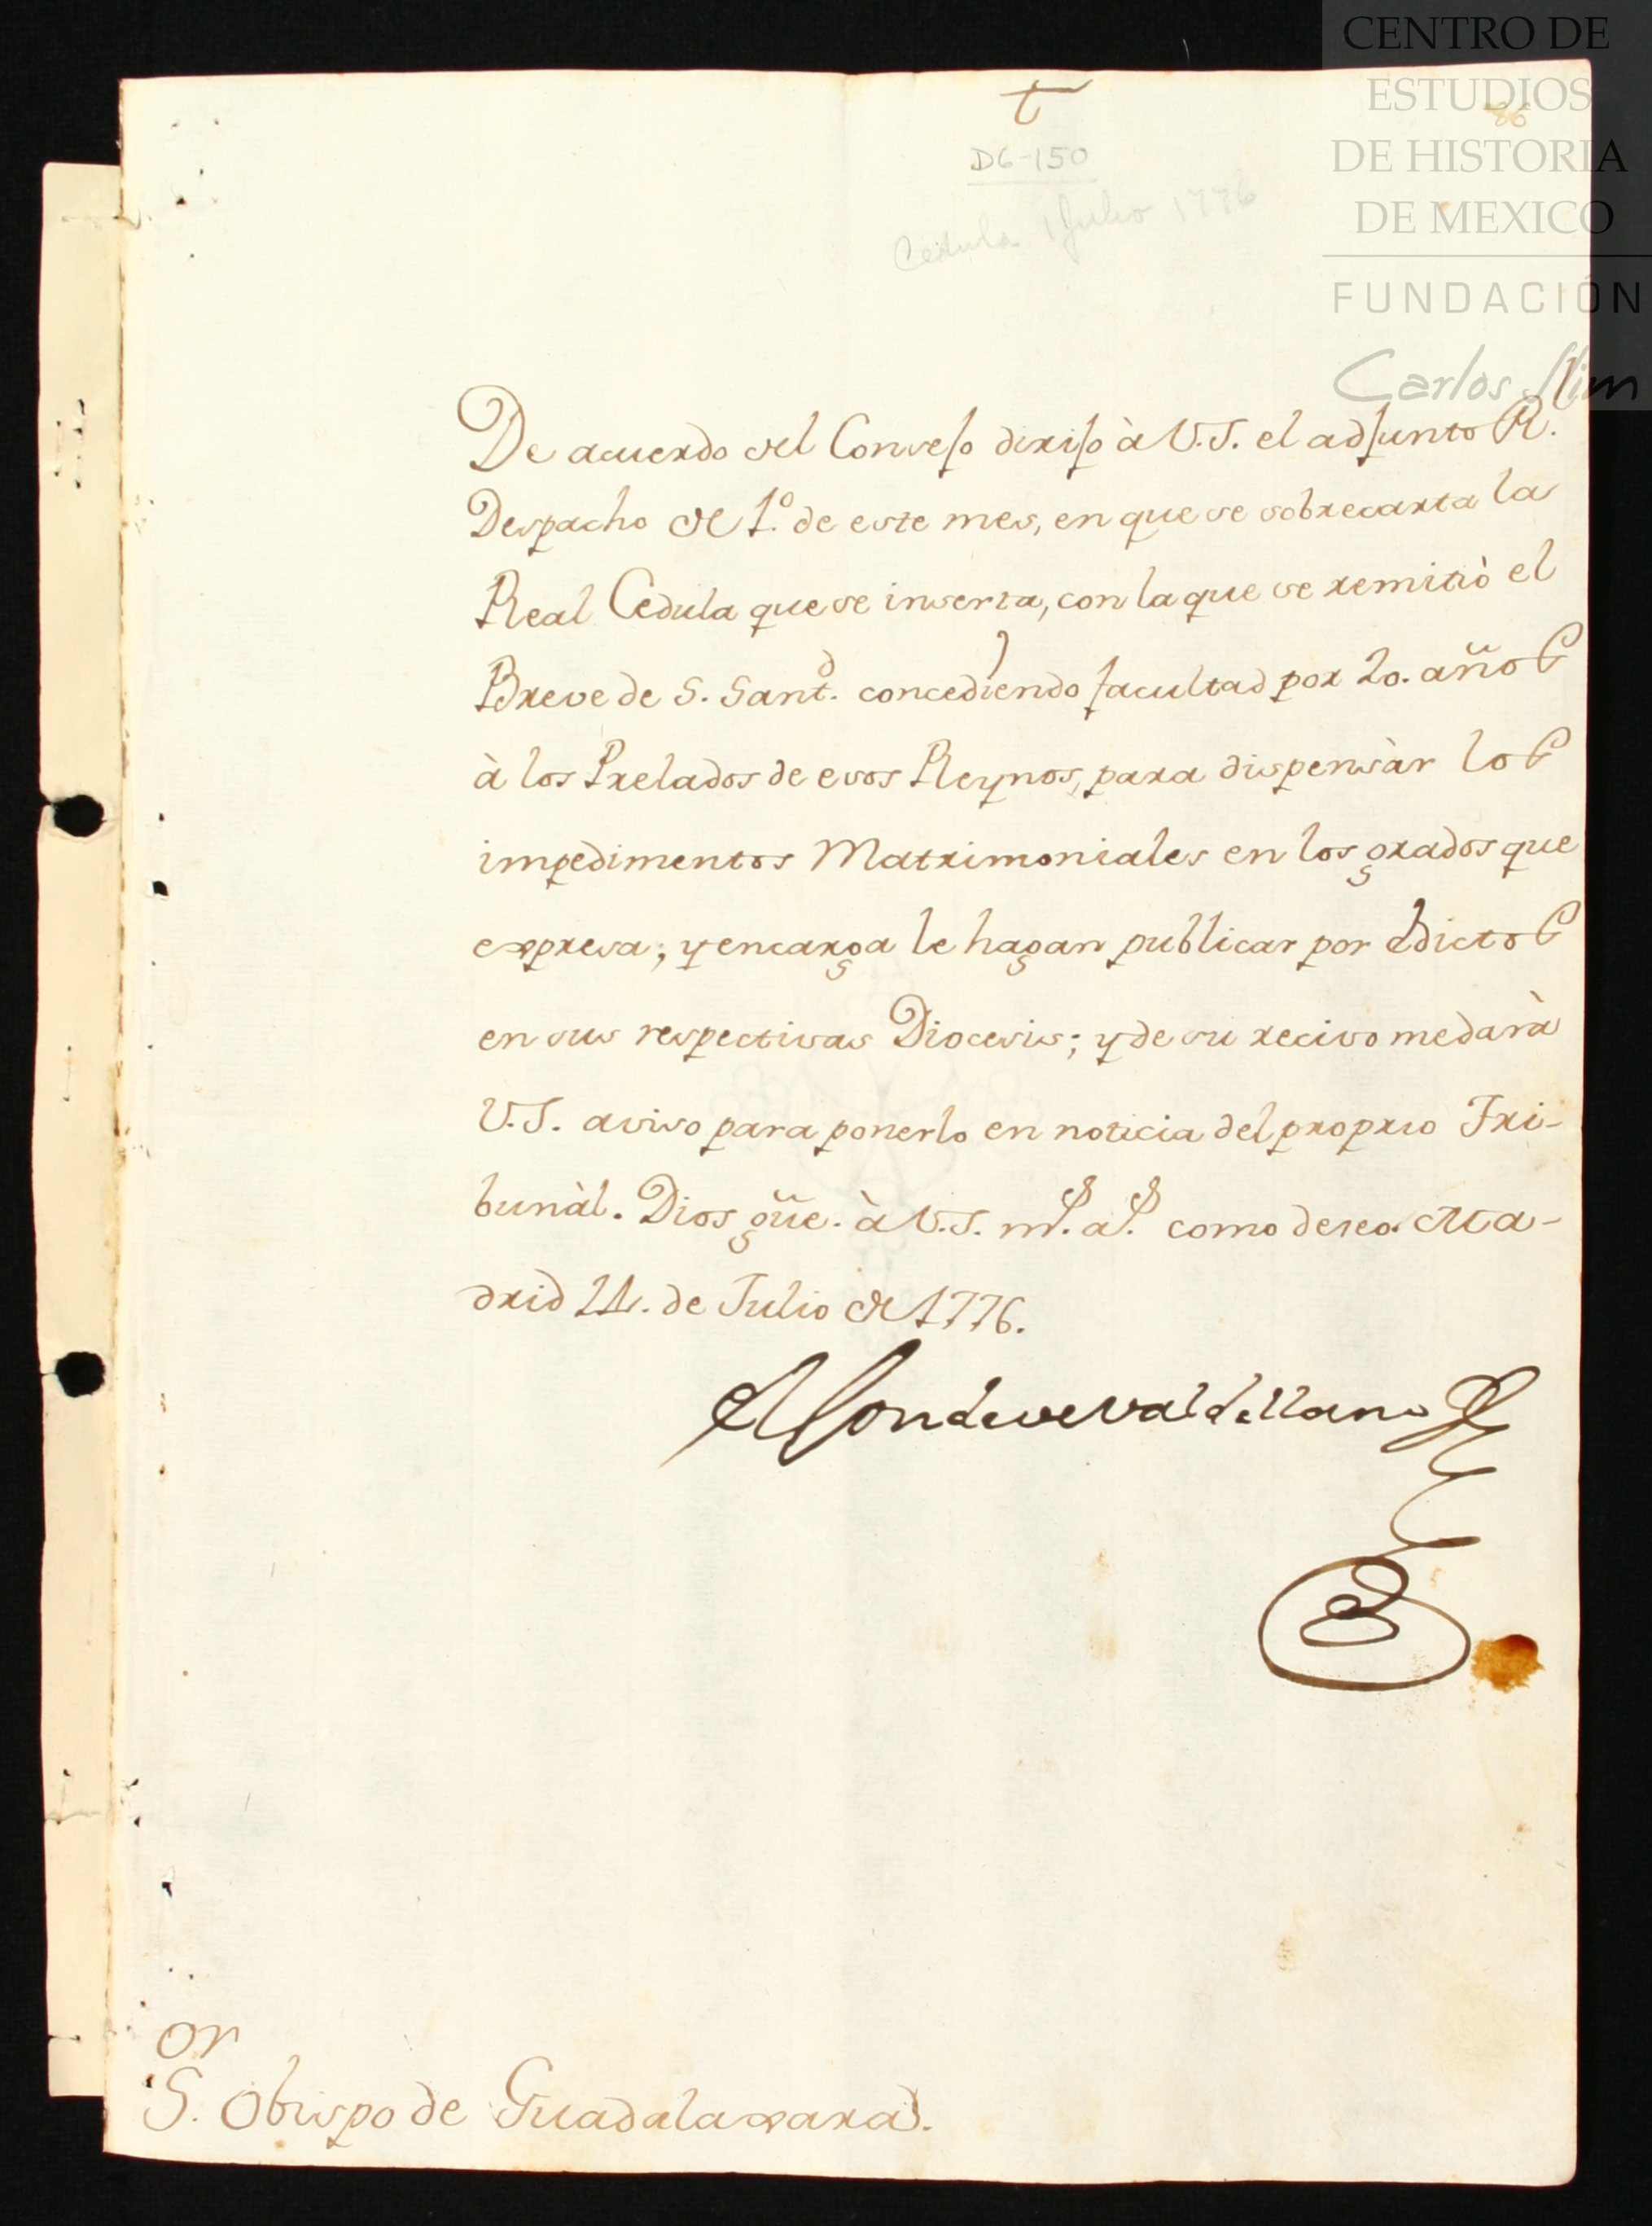 CENTRO DE
ESTUDIOS
DE HISTORIA
DE MEXICO
FUNDACIÓN
Carlos Slim
86
D6-150
Cedula 1 Julio 1776
De acuerdo del Consejo dirijo à V.S. el adjunto R.
Despacho de 1.º de este mes, en que se sobrecarta la
Real Cedula que se inserta, con la que se remitiò el
Breve de S. Sant.d concediendo facultad por 20. años
à los Prelados de esos Reynos, para dispensàr los
impedimentos Matrimoniales en los grados que
expresa; y encarga le hagan publicar por Edictos
en sus respectivas Diocesis; y de su recivo me darà
V.S. aviso para ponerlo en noticia del proprio Tri-
bunàl. Dios gũe. à V.S. m.s a.s como deseo. Ma-
drid 11. de Julio de 1776.
El Conde de Valdellano
S.or Obispo de Guadalaxara.